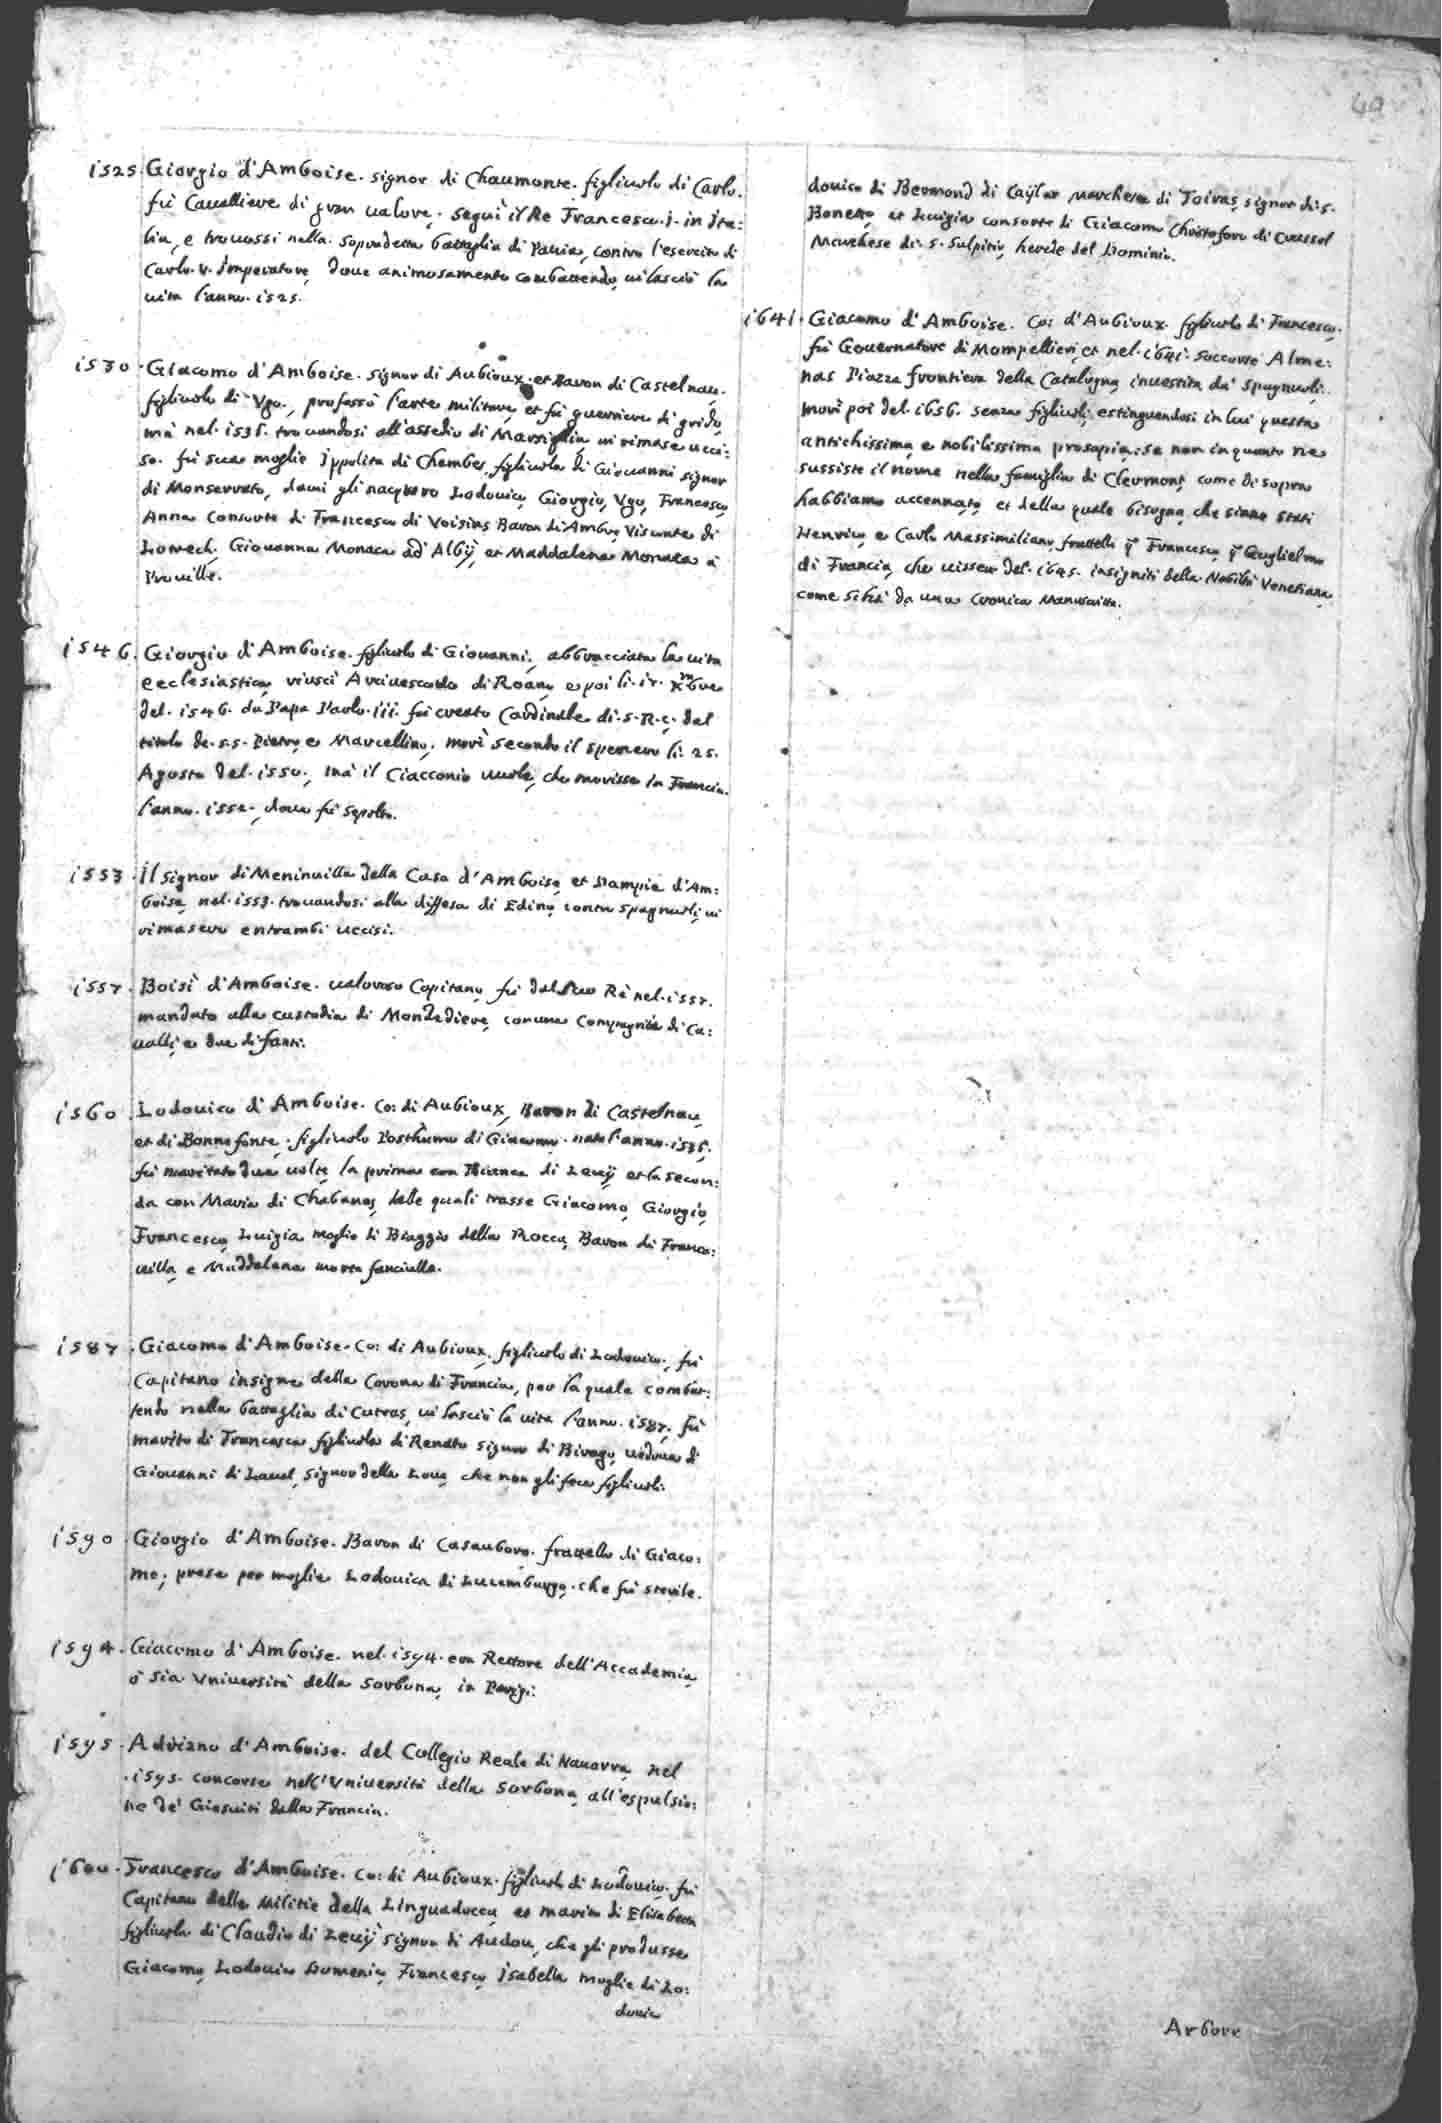 49
1525 Giorgio d'Amboise. signor di Chaumonte. figliuolo di Carlo.
fù Cavalliere di gran valore. seguì il Re Francesco. j. in Ita:
lia, e trovossi nella sopradetta battaglia di Pavia, contro l'esercito di
Carlo. v. Imperatore, dove animosamente combattendo, vi lasciò la
vita l'anno. 1525.
1530. Giacomo d'Amboise. signor di Aubioux. et Baron di Castelnau.
figliuolo di Vgo., professò l'arte militare, et fù guerriero di grido,
mà nel. 1536. trovandosi all'assedio di Marsiglia vi rimase ucci:
so. fù sua moglie Ippolita di Chembes, figliuola di Giovanni signor
di Monserrato, da cui gli nacquero Lodovico, Giorgio, Vgo, Francesco
Anna Consorte di Francesco di Voisins Baron di Ambres Visconte di
Lotrech, Giovanna Monaca ad' Albÿ, et Maddalena Monaca à
Proville.
1546. Giorgio d'Amboise. figliuolo di Giovanni, abbracciata la vita
ecclesiastica, riuscì Arcivescovo di Roano, e poi li. 17. Xmbre
del. 1546. da Papa Paolo. iii. fù creato Cardinale di. S. R. C. del
titolo de. s.s. Pietro, e Marcellino, morì secondo il li. 25.
Agosto del. 1550., mà il Ciacconio vuole, che morisse in Francia
l'anno. 1552., dove fù sepolto.
1553. Il signor di Meninville della Casa d'Amboise, et Dampié d'Am:
boise, nel. 1553. trovandosi alla diffesa di Edino, contro Spagnuoli, vi
rimasero entrambi uccisi.
1557. Boisì d'Amboise. valoroso Capitano, fù dal suo Rè nel. 1557.
mandato alla custodia di Mondediere, con una Compagnia di Ca:
valli, e due di fanti.
1560. Lodovico d'Amboise. Co: di Aubioux, Baron di Castelnau,
et di Bonnefonte. figliuolo Posthumo di Giacomo. nato l'anno. 1536.
fù maritato due volte, la prima con Bianca di Levÿ et la secon:
da con Maria di Chabanes, dalle quali trasse Giacomo, Giorgio,
Francesco, Luigia moglie di Biaggio della Rocca, Baron di Franca:
villa, e Maddalena morta fanciulla.
1587. Giacomo d'Amboise. Co: di Aubioux. figliuolo di Lodovico, fù
Capitano insigne della Corona di Francia, per la quale combat:
tendo nella battaglia di Cutras, vi lasciò la vita l'anno. 1587. fù
marito di Francesca figliuola di Renato signor di Birago, vedova di
Giovanni di Laval, signor della Loue, che non gli fece figliuoli.
1590. Giorgio d'Amboise. Baron di Casaubono. fratello di Giaco:
mo; prese per moglie Lodovica di Lucemburgo. che fù sterile.
1594. Giacomo d'Amboise. nel. 1594. era Rettore dell'Accademia,
ò sia Vniversità della Sorbona, in Parigi.
1595. Adriano d'Amboise. del Collegio Reale di Navarra, nel
.1595. concorse nell'Vniversità della Sorbona, all'espulsio:
ne de' Giesuiti dalla Francia.
1600. Francesco d'Amboise. Co: di Aubioux. figliuolo di Lodovico. fù
Capitano delle Militie della Linguadocca, et marito di Elisabetta
figliuola di Claudio di Levÿ signor di Audou, che gli produsse
Giacomo, Lodovico Domenico, Francesco, Isabella moglie di Lo:
dovico
dovico di Bermond di Caÿlar marchese di Toiras, signor di. S.
Bonetto, et Luigia consorte di Giacomo Christoforo di Crussol
Marchese di. S. Sulpitio, herede del Dominio.
1641. Giacomo d'Amboise. Co: d'Aubioux. figliuolo di Francesco.
fù Governatore di Mompellieri, et nel. 1641. soccorse Alme:
nas Piazza frontiera della Catalogna, investita da' Spagnuoli.
morì poi del. 1656. senza figliuoli, estinguendosi in lui questa
antichissima, e nobilissima prosapia, se non in quanto ne
sussiste il nome nella famiglia di Clermont, come di sopra
habbiamo accennato, et della quale bisogna, che siano stati
Henrico, e Carlo Massimiliano, fratelli q. Francesco, q. Guglielmo
di Francia, che vissero del. 1645. insigniti della Nobiltà Venetiana,
come si hà da una Cronica Manuscritta.
Arbore